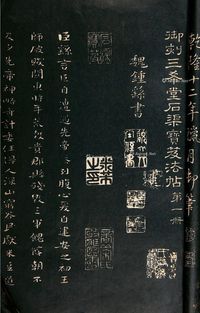 乾隆十二年月御筆
御刻三希堂石渠寶笈法帖第一冊
魏鍾繇書
臣繇言臣自遭遇先帝忝列腹心爰自建安之初王
師破賊關東時年荒穀貴郡縣殘毀三軍餽饟朝不
及夕先帝神略奇計委任得人深山窮谷民獻米豆道